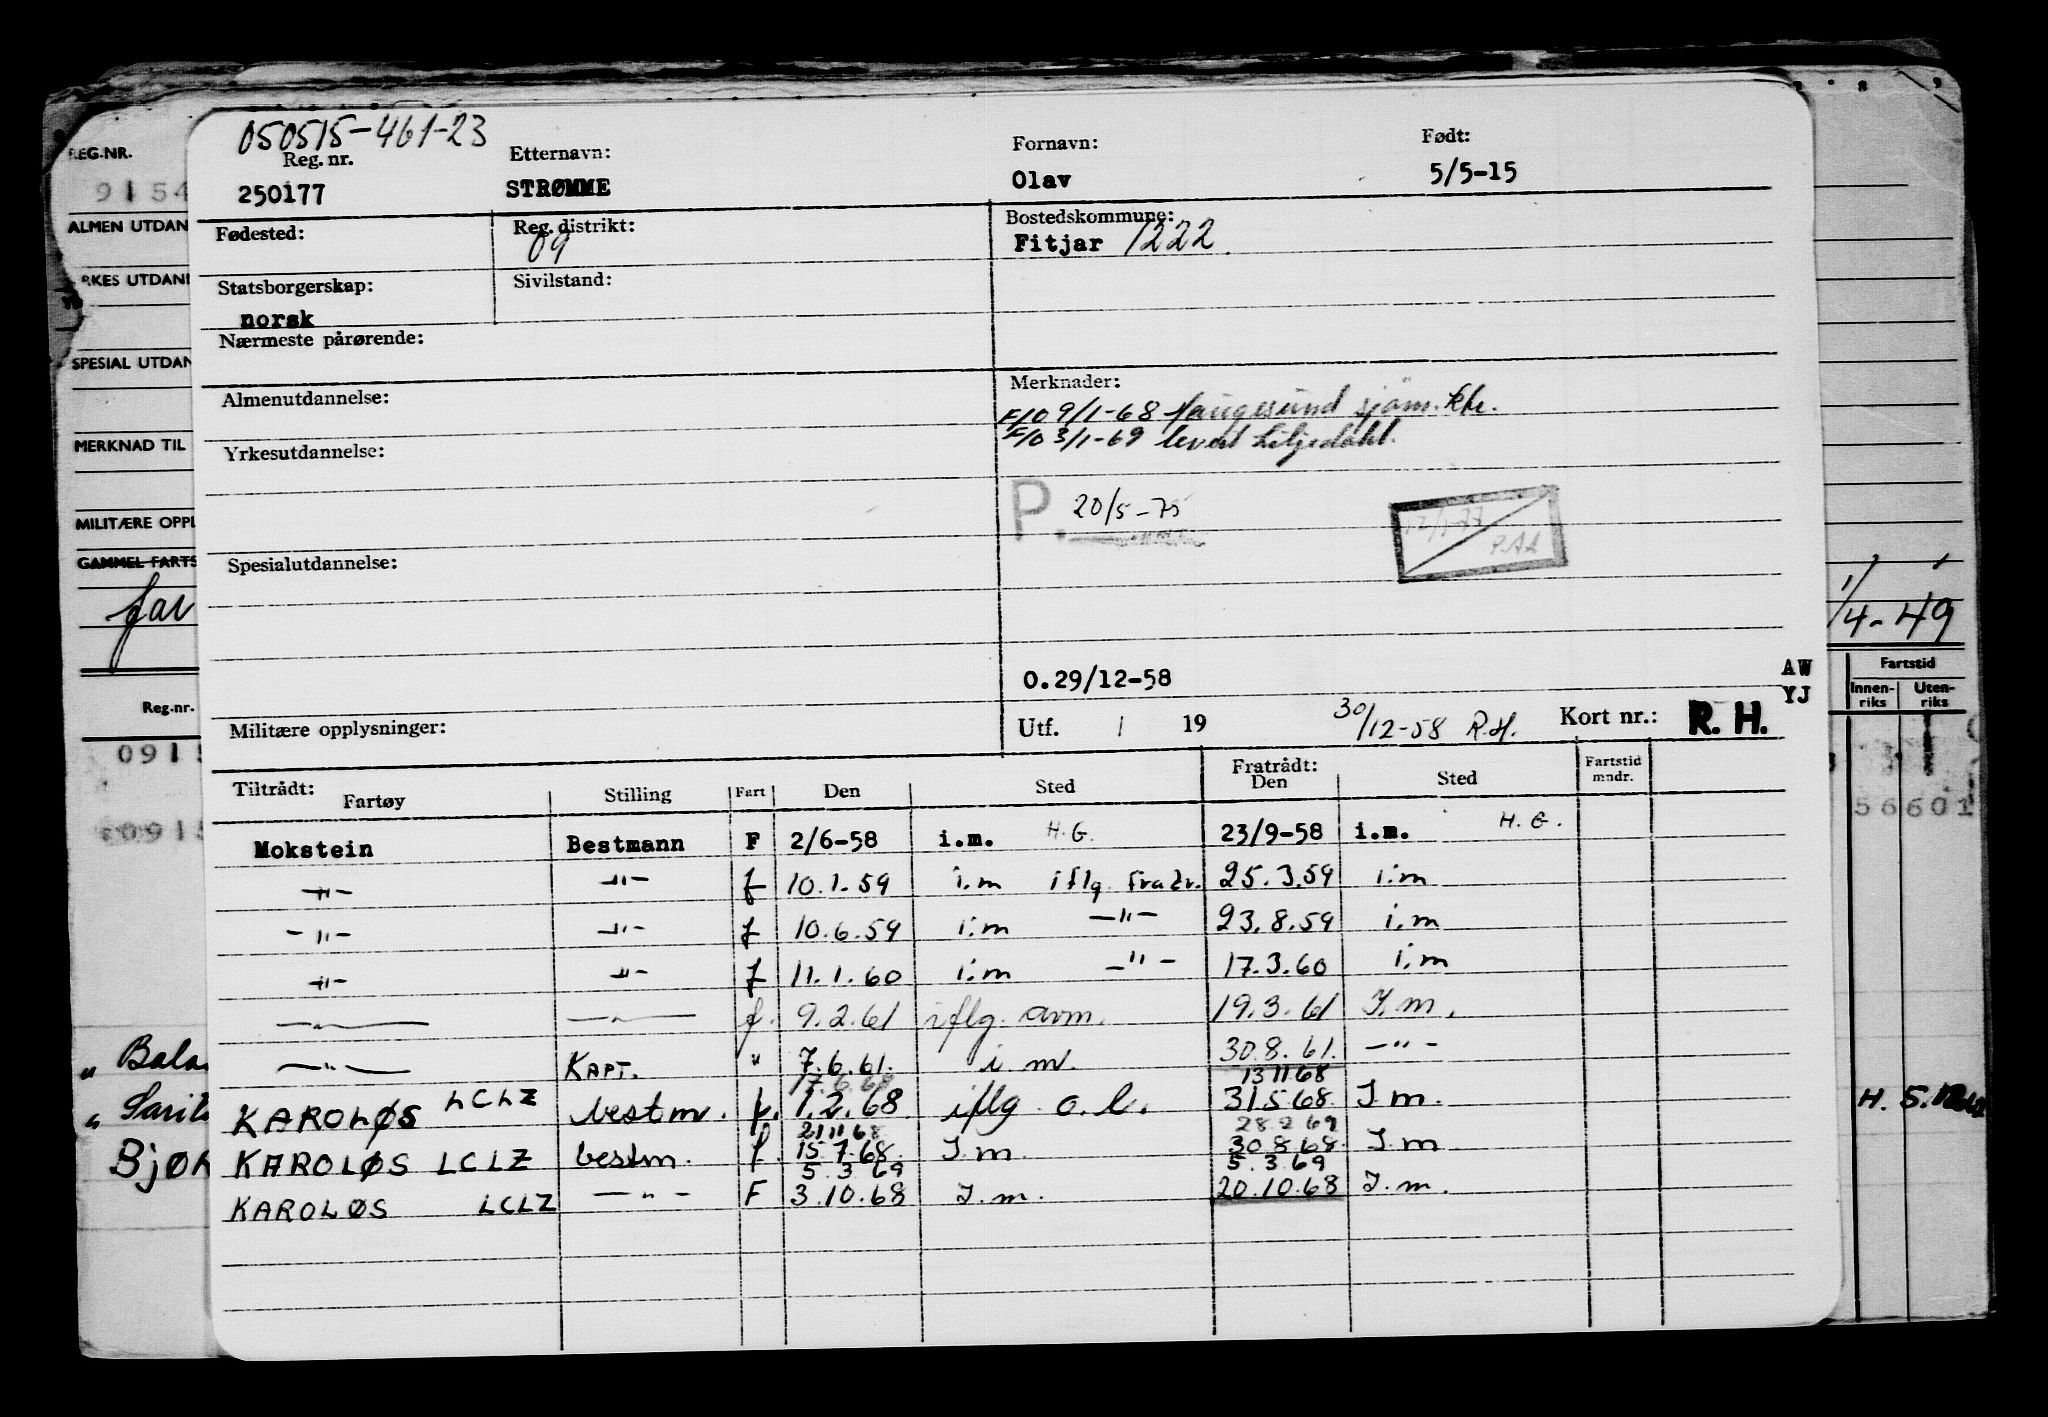 050515-461-23
Reg. nr. Etternavn: Fornavn: Født:
250177 STRØMME Olav 5/5-15
Fødested: Reg. distrikt: 09 Bostedskommune: Fitjar 1222.
Statsborgerskap: norsk Sivilstand:
Nærmeste pårørende:
Almenutdannelse: Merknader:
F/O 9/1-68 Haugesund sjøm. ktr.
F/O 3/1-69 levert Liljedahl.
Yrkesutdannelse:
P. 20/5-75
Spesialutdannelse:
O.29/12-58
AW
YJ
Militære opplysninger: Utf. / 19 30/12-58 R.H. Kort nr.: R. H.
Tiltrådt: Fratrådt:
Fartøy Stilling Fart Den Sted Den Sted Fartstid mndr.
Mokstein Bestmann F 2/6-58 i.m. H.G. 23/9-58 i.m. H.G.
-"- -"- f 10.1.59 i.m iflg. fratr. 25.3.59 i.m
-"- -"- f 10.6.59 i.m -"- 23.8.59 i.m
-"- -"- f 11.1.60 i.m -"- 17.3.60 i.m
-"- -"- f. 9.2.61 iflg. avm. 19.3.61 I.m.
-"- KAPT. " 7.6.61. i.m. 30.8.61. -"-
17.6.68 13 11 68
KAROLØS LCLZ bestm. f. 1.2.68 iflg. o.l. 31.5 68. I.m.
21 11 68 28 2 69
KAROLØS LCLZ bestm. f. 15.7.68. I.m. 30.8.68. I.m
5.3.69 5.3.69
KAROLØS LCLZ -"- F 3.10.68 I.m. 20.10.68 I.m.
REG.NR.
9154
ALMEN UTDAN
RKES UTDAN
SPESIAL UTDAN
MERKNAD TIL
MILITÆRE OPPL
GAMMEL FARTS
far
Reg.-nr.
0915
0915
" Bala
" Sarit
Bjør
1/4-49
Fartstid
Innen-riks Uten-riks
56601
H. 5.12